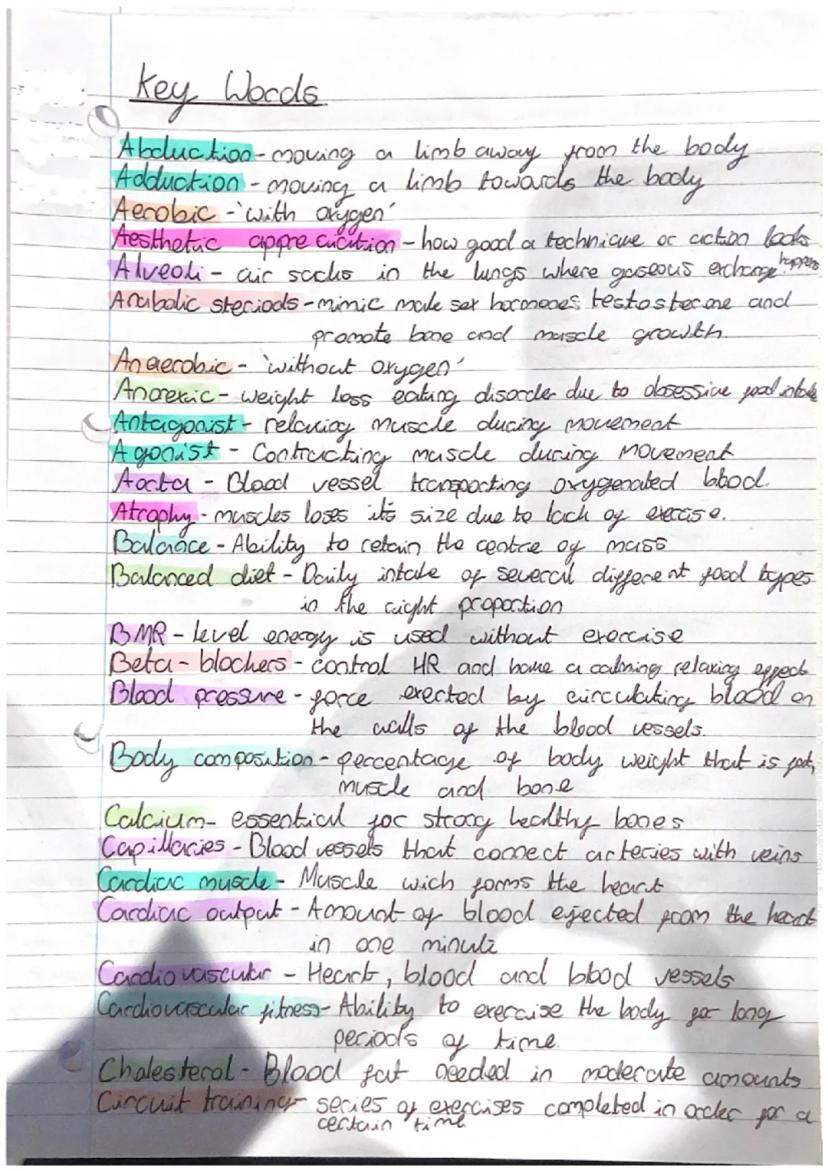 Key Words
Abduction - moving a limb away from the body
Adduction - moving a limb towards the body
Aerobic - 'with oxygen'
Aesthetic appreciation - how good a technique or action looks
Alveoli - air sacks in the lungs where gaseous exchange happens
Anabolic steriods - mimic male sex hormones testosterone and
promote bone and muscle growth.
Anaerobic - 'without oxygen'
Anorexic - weight loss eating disorder due to obsessive food intake
Antagonist - relaxing muscle during movement
Agonist - Contracting muscle during movement
Aorta - Blood vessel transporting oxygenated blood.
Atrophy - muscles loses its size due to lack of exercise.
Balance - Ability to retain the centre of mass
Balanced diet - Daily intake of several different food types
in the right proportion
BMR - level energy is used without exercise
Beta-blockers - control HR and have a calming relaxing effect
Blood pressure - force exerted by circulating blood on
the walls of the blood vessels.
Body composition - percentage of body weight that is fat,
muscle and bone
Calcium - essential for strong healthy bones
Capillaries - Blood vessels that connect arteries with veins
Cardiac muscle - Muscle wich forms the heart
Cardiac output - Amount of blood ejected from the heart
in one minute
Cardiovascular - Heart, blood and blood vessels
Cardiovascular fitness - Ability to exercise the body for long
periods of time.
Cholesterol - Blood fat needed in moderate amounts
Circuit training - series of exercises completed in order for a
certain time